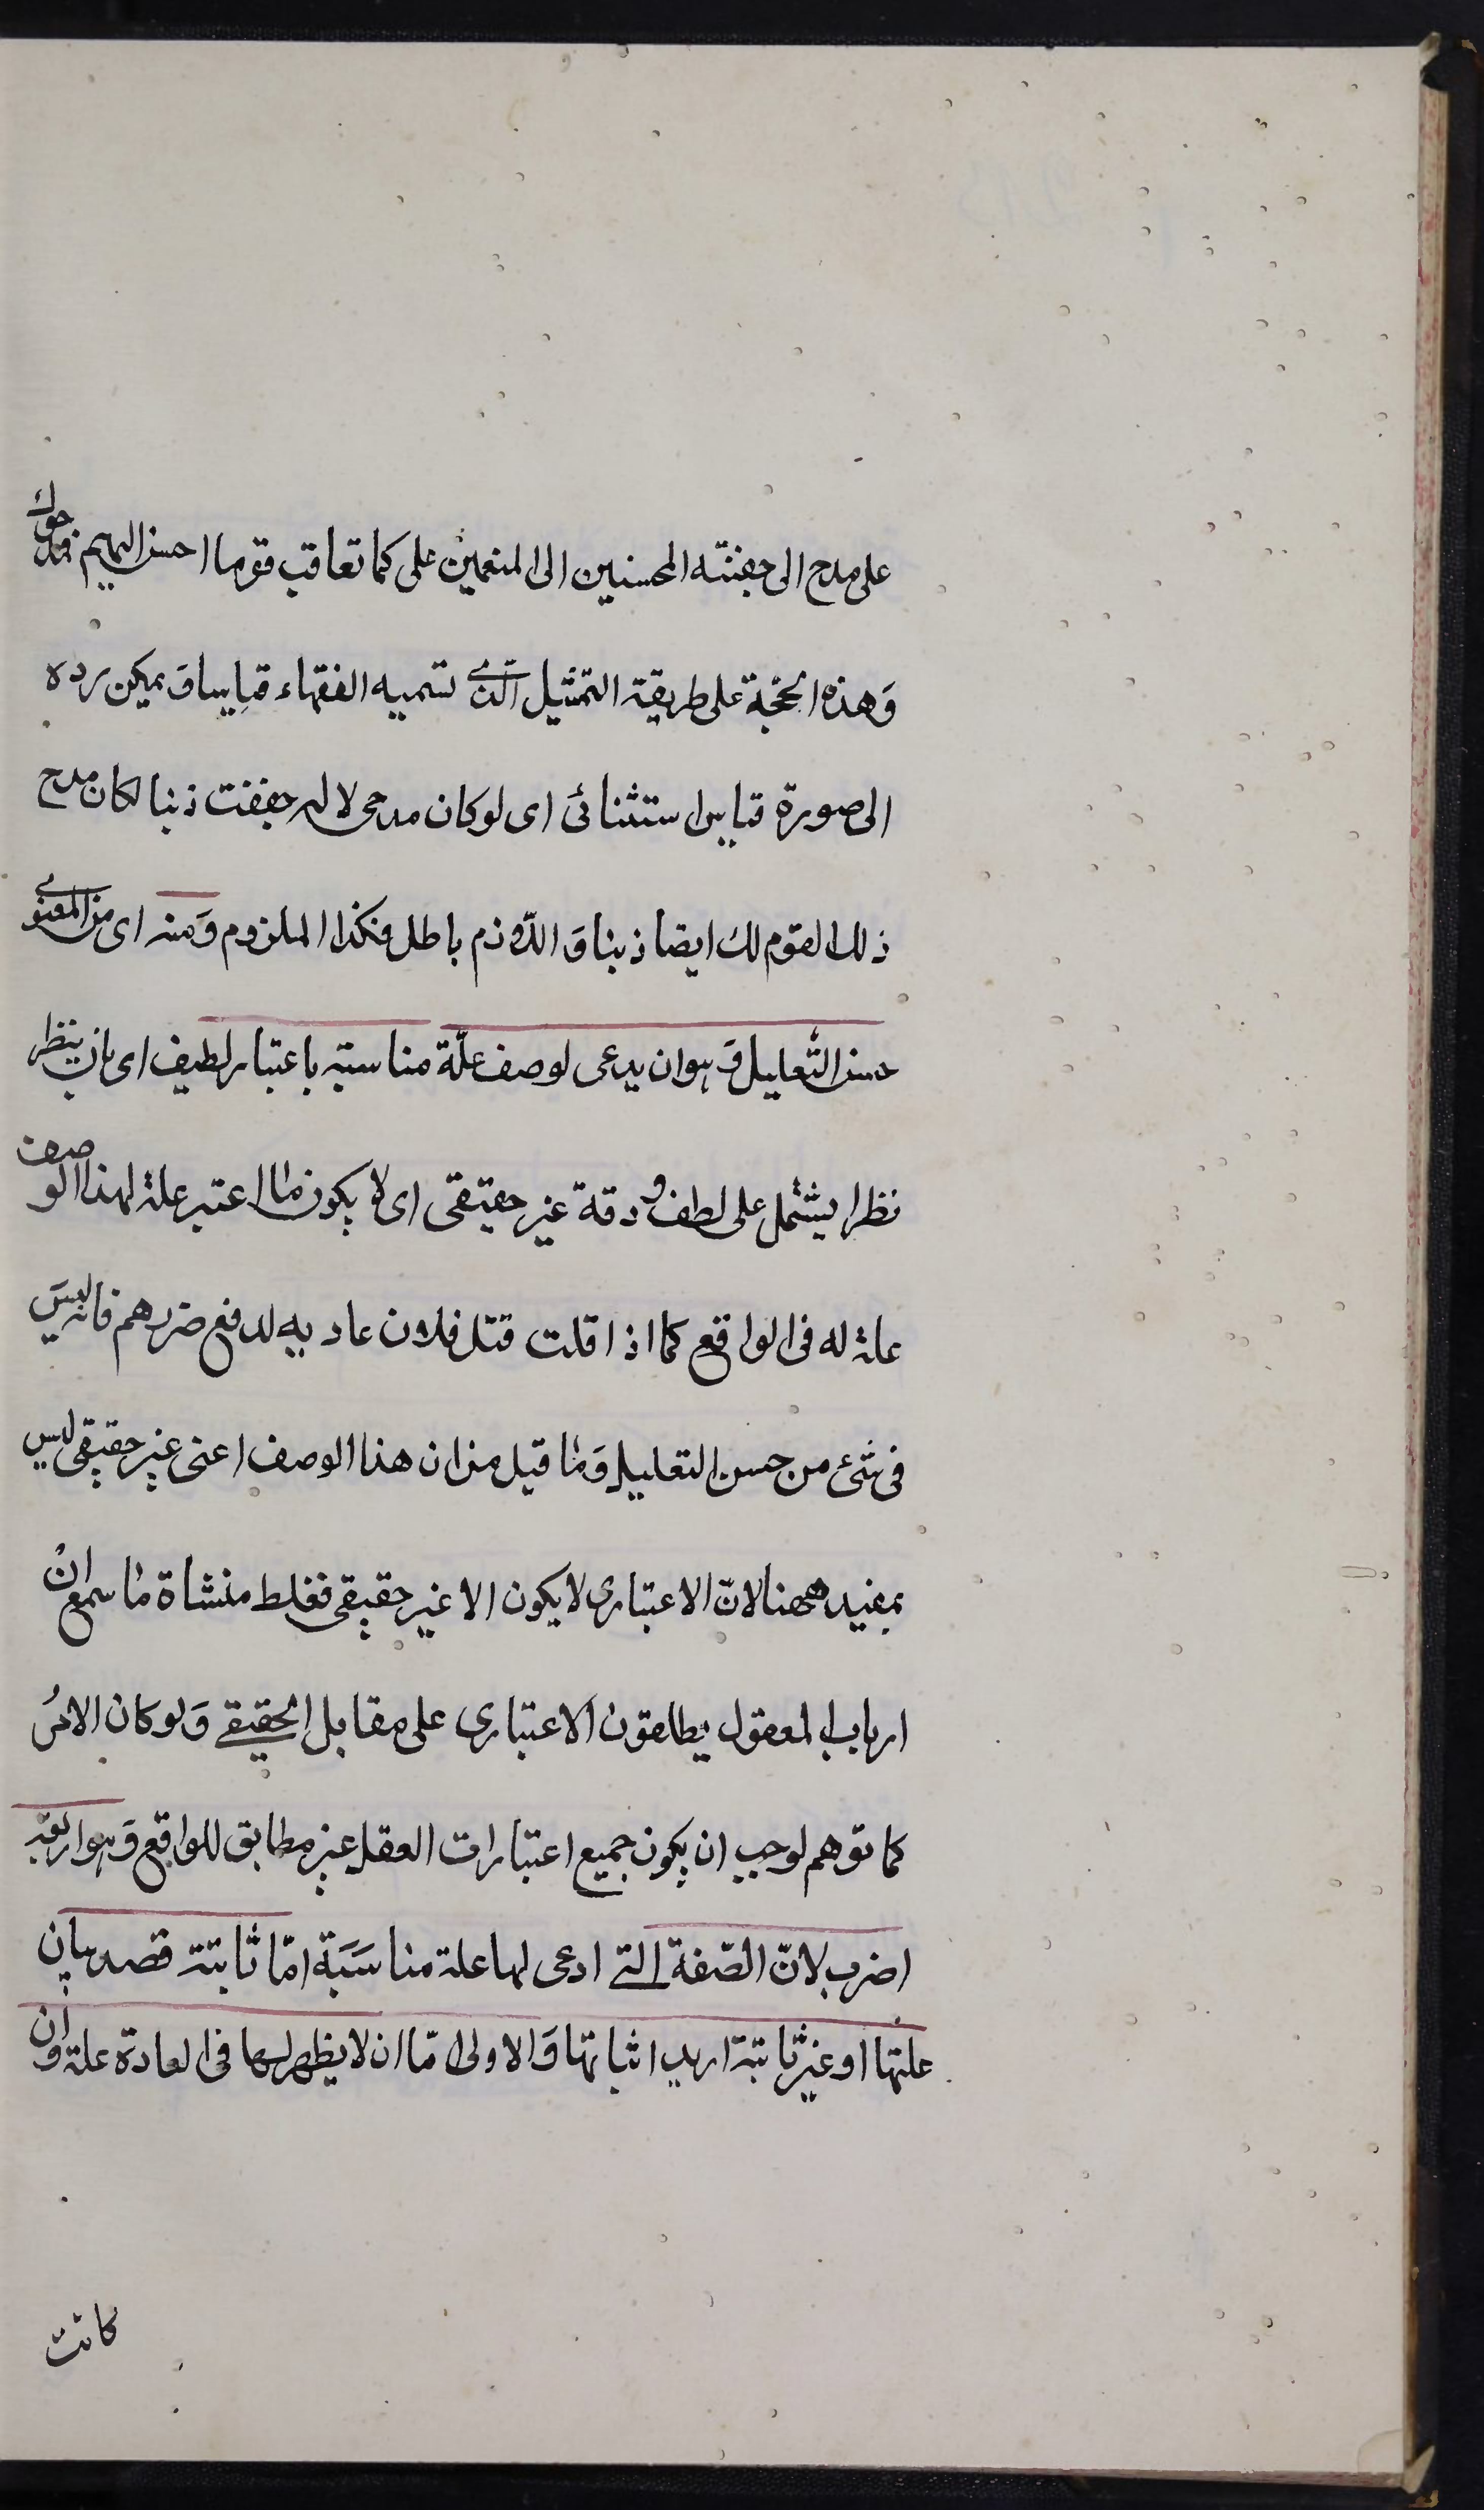 على مدح ال جفنته المحسنين الى المنعمين على كما تعاقب قوما احسن اليهم فمدحوك
وَهذه الحجّة على طريقة التمثيل الّذي تسميه الفقهاء قياسا وَ يمكن رده
الى صورة قياس استثنائى اى لو كان مدحى لال جفنت ذنبا لكان مدح
ذلك القوم لك ايضا ذنبا وَ اللّازم باطل فكذا الملزوم وَمنه اى من المعنوي
حسن التّعليل وَ هو ان يدعى لوصف علّة مناسبة باعتبار لطيف اى بان ينظر
نظرا يشتمل على لطف و دقة غير حقيقى اى لا يكون ما اعتبر علة لهذا الوصف
علة له فى الواقع كما اذا قلت قتل فلان عاديه لدفع ضررهم فانه ليسَ
فى شئ من حسن التعليل وَ ما قيل من ان هذا الوصف اعنى غير حقيقى ليس
بمفيد ههنا لانّ الاعتبارى لا يكون الا غير حقيقى فغلط منشاة ما سمع ان
ارباب المعقول يطلقون الاعتبارى على مقابل الحقيقي وَ لو كان الامرُ
كما توهم لوجب ان يكون جميع اعتبارات العقل غير مطابق للواقع وَ هو اربعة
اضرب لانّ الصّفة التي ادعى لها علة مناسَبَة امّا ثابتة قصد بيان
علتها او غير ثابتة اريد اثباتها وَ الاولى امّا ان لا يظهر لها فى العادة علة وان
كانت